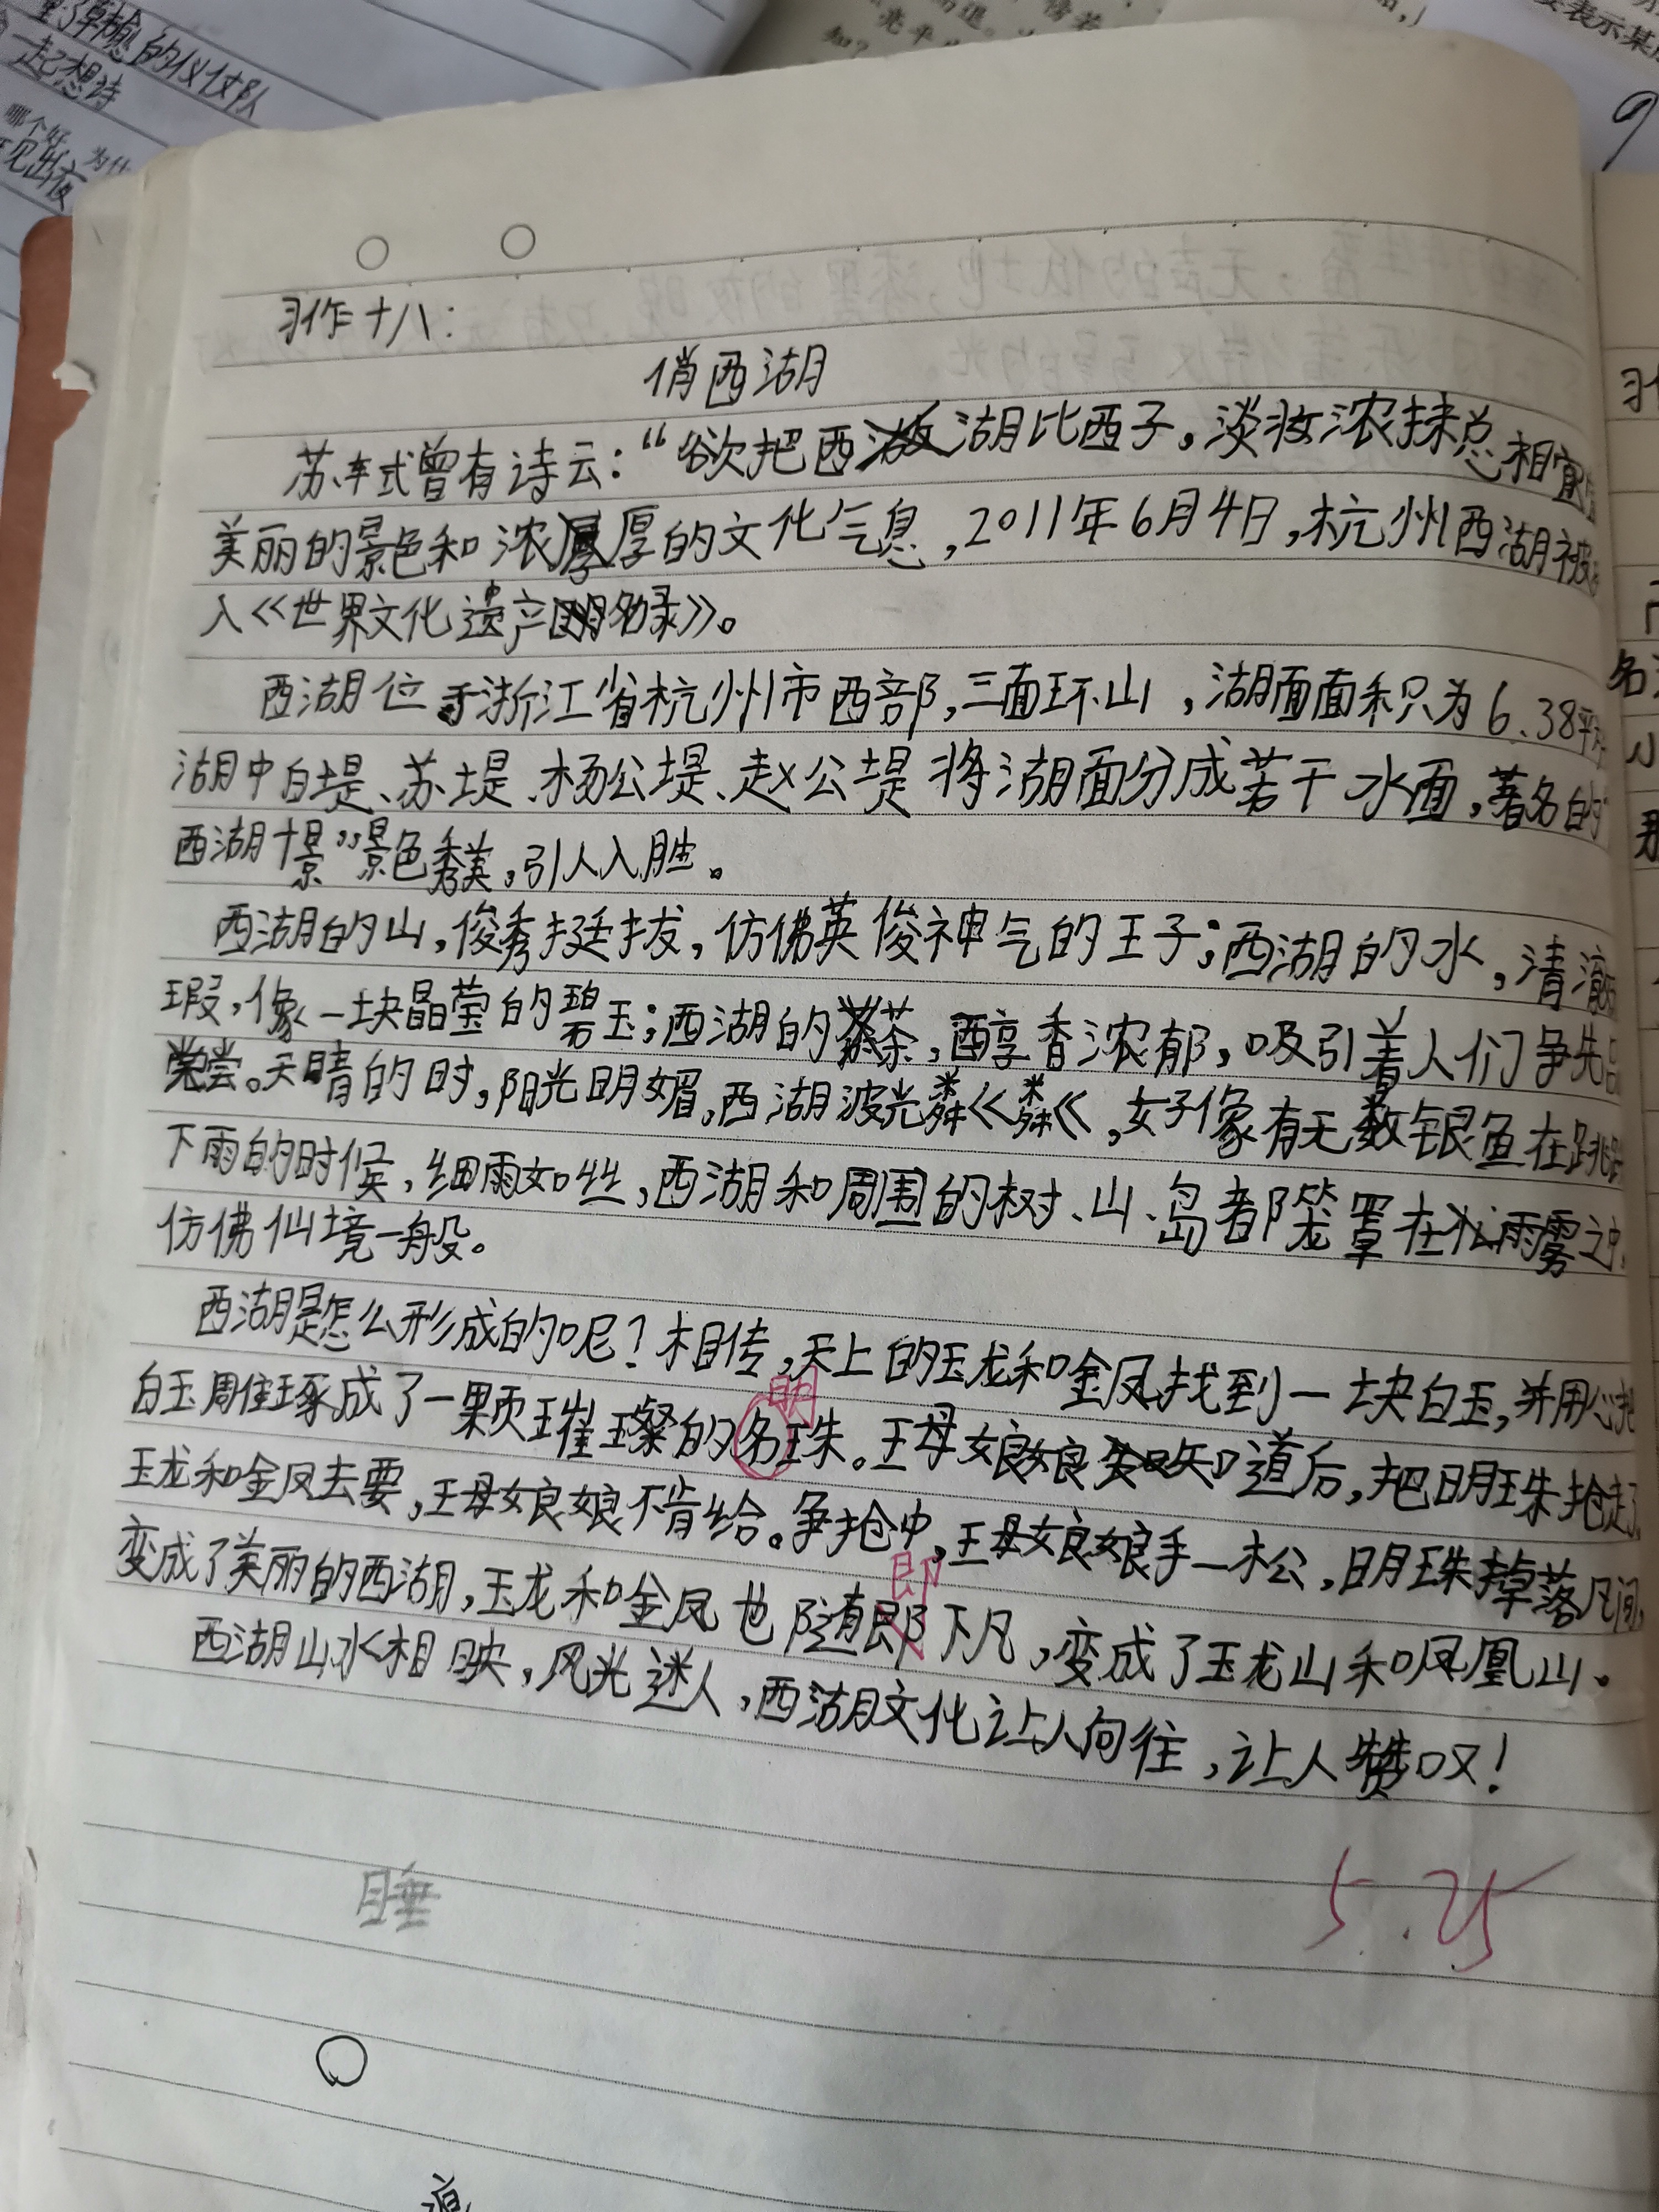 的仪仗队
一起想诗
哪个好 为什
见出夜
要表示某
习作十八：
俏西湖
苏轼曾有诗云：“欲把西湖比西子，淡妆浓抹总相宜
美丽的景色和浓厚的文化气息，2011年6月4日，杭州西湖被
入《世界文化遗产名录》。
西湖位于浙江省杭州市西部，三面环山，湖面面积为6.38平
湖中白堤、苏堤、杨公堤、赵公堤将湖面分成若干水面，著名的“
西湖十景”景色秀美，引人入胜。
西湖的山，俊秀挺拔，仿佛英俊神气的王子；西湖的水，清澈
瑕，像一块晶莹的碧玉；西湖的茶，醇香浓郁，吸引着人们争先品
尝。天晴的时，阳光明媚，西湖波光粼粼，好像有无数银鱼在跳
下雨的时候，细雨如丝，西湖和周围的树、山、岛都笼罩在雨雾之中，
仿佛仙境一般。
西湖是怎么形成的呢？相传，天上的玉龙和金凤找到一块白玉，并用心把
明
白玉周住琢成了一颗璀璨的名珠。王母娘娘知道后，把明珠抢走了
玉龙和金凤去要，王母娘娘不肯给。争抢中，王母娘娘手一松，明珠掉落凡间，
即
变成了美丽的西湖，玉龙和金凤也随即下凡，变成了玉龙山和凤凰山。
西湖山水相映，风光迷人，西湖文化让人向往，让人赞叹！
5.25
睡